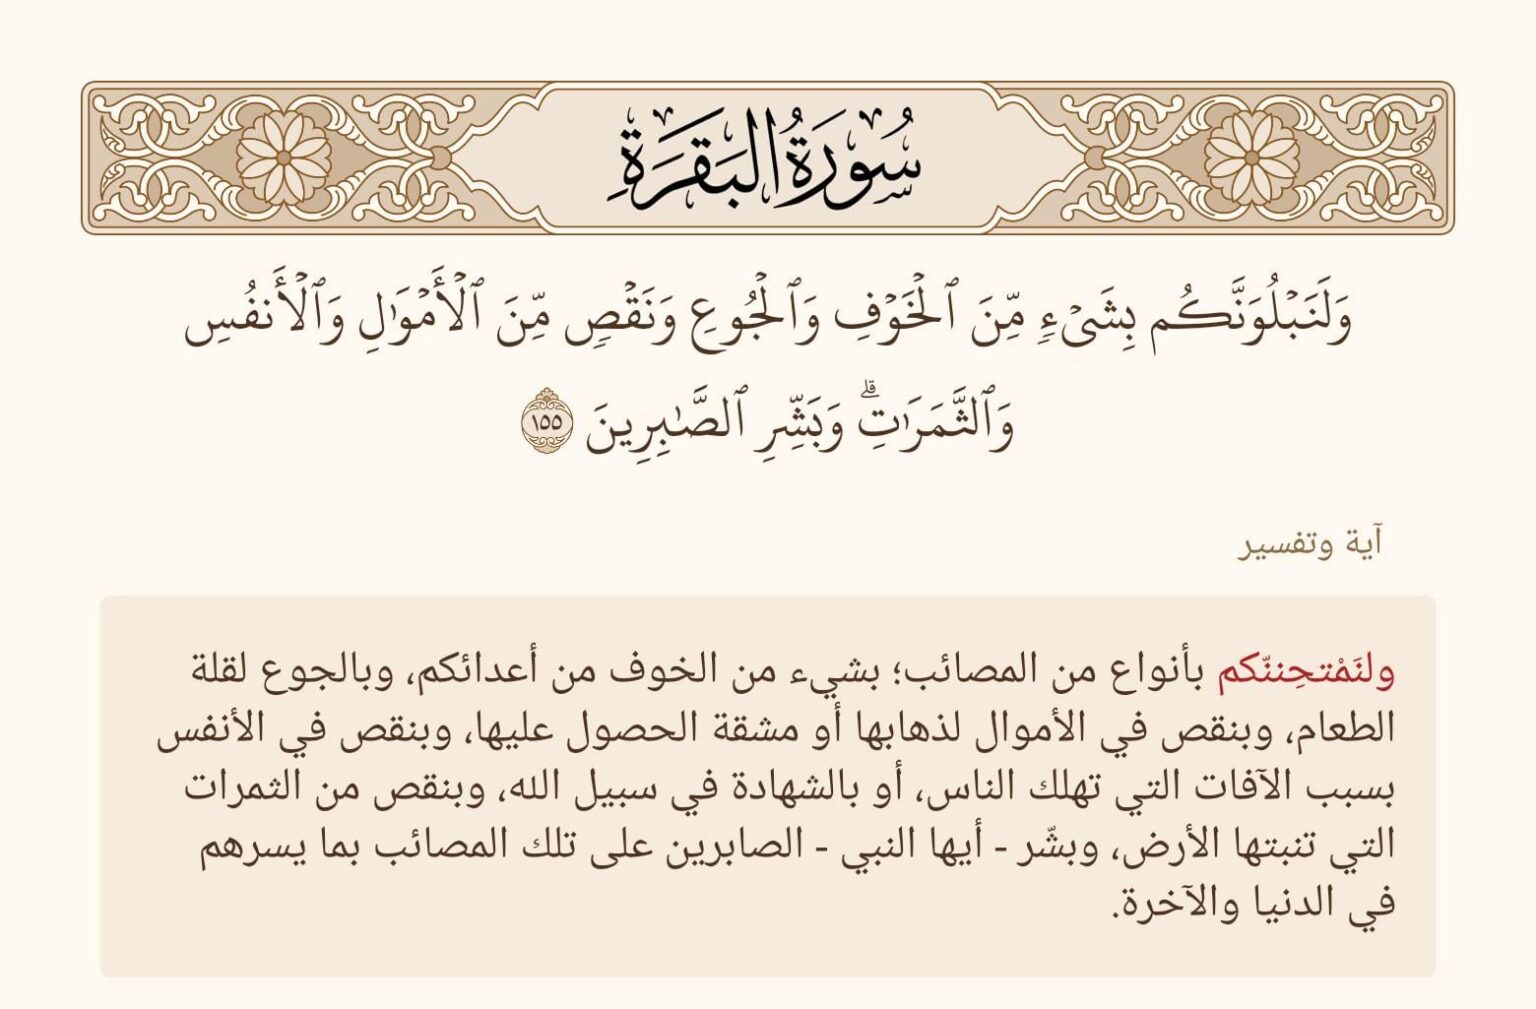 سُورَةُ البَقَرَةِ
وَلَنَبۡلُوَنَّكُم بِشَيۡءٖ مِّنَ ٱلۡخَوۡفِ وَٱلۡجُوعِ وَنَقۡصٖ مِّنَ ٱلۡأَمۡوَٰلِ وَٱلۡأَنفُسِ
وَٱلثَّمَرَٰتِۗ وَبَشِّرِ ٱلصَّٰبِرِينَ ١٥٥
آية وتفسير
ولنَمْتحِننّكم بأنواع من المصائب؛ بشيء من الخوف من أعدائكم، وبالجوع لقلة
الطعام، وبنقص في الأموال لذهابها أو مشقة الحصول عليها، وبنقص في الأنفس
بسبب الآفات التي تهلك الناس، أو بالشهادة في سبيل الله، وبنقص من الثمرات
التي تنبتها الأرض، وبشّر - أيها النبي - الصابرين على تلك المصائب بما يسرهم
في الدنيا والآخرة.